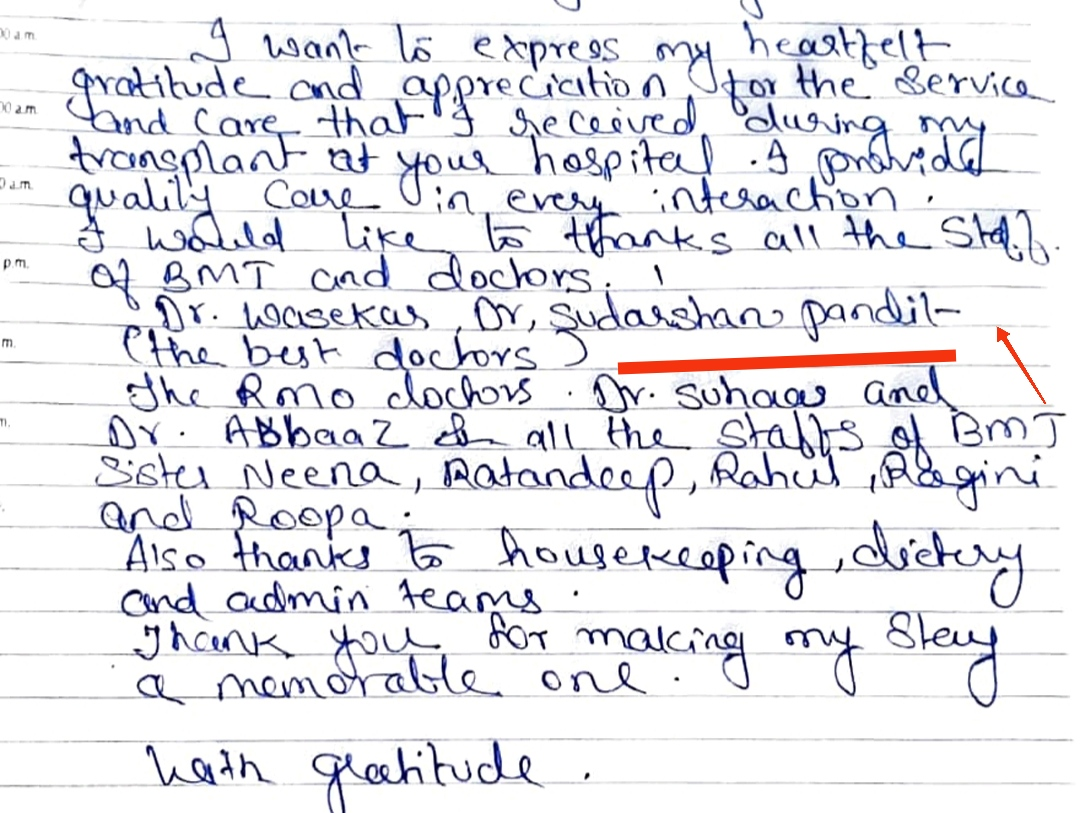 00 a.m.
I want to express my heartfelt
gratitude and appreciation for the service
00 a.m.
and care that I received during my
transplant at your hospital . I provided
0 a.m.
quality care in every interaction .
I would like to thanks all the Staff.
p.m.
of BMT and doctors.
Dr. Wasekar, Dr, Sudarshan pandit
m.
(the best doctors)
The RMO doctors . Dr. Suhaas and
n.
Dr. ABbaaz & all the staffs of BMT
Sister Neena, Ratandeep, Rahul, Ragini
and Roopa.
Also thanks to housekeeping, dietery
and admin teams .
Thank you for making my Stay
a memorable one .
With gratitude .